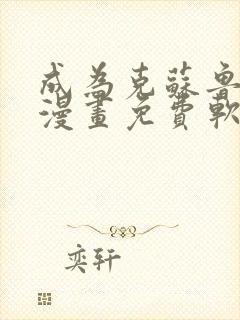 成為克蘇魯
漫畫免費軟
奕轩